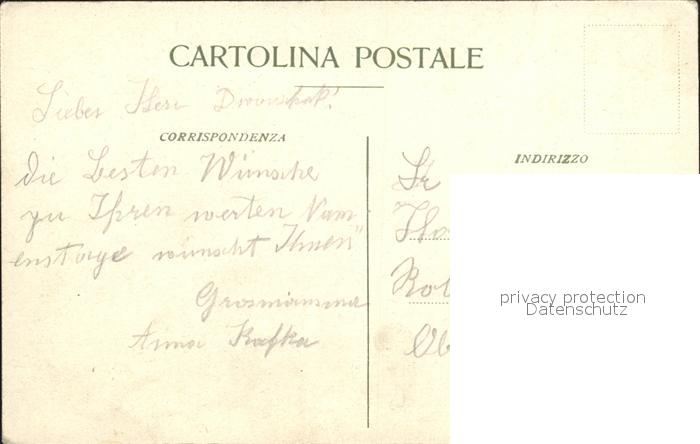 CARTOLINA POSTALE
Lieber Herr
CORRISPONDENZA
die besten Wünsche
zu Ihren werten Nam
enstage wünscht Ihnen"
Grosmamma
Anna Kafka
INDIRIZZO
privacy protection
Datenschutz